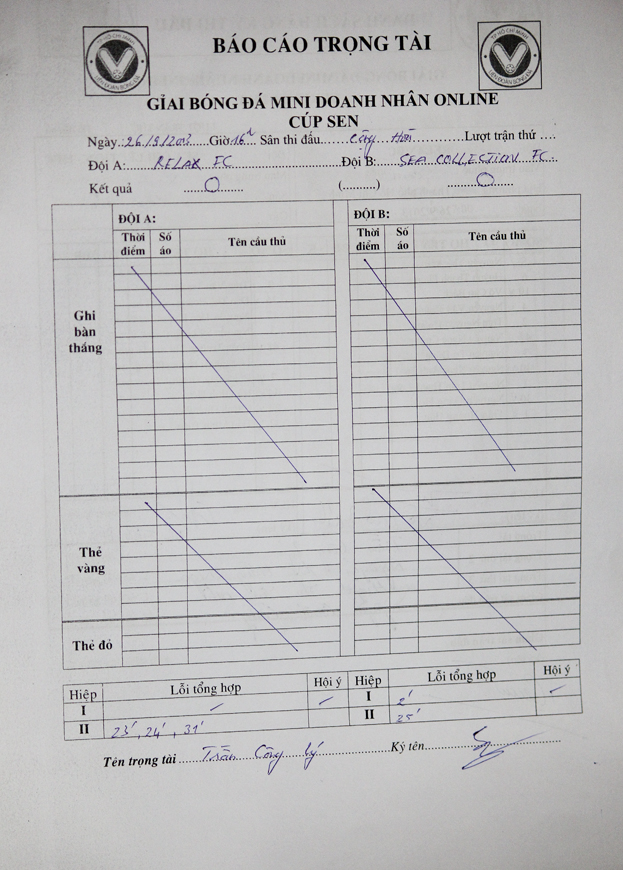 TP HỒ CHÍ MINH
LIÊN ĐOÀN BÓNG ĐÁ
BÁO CÁO TRỌNG TÀI
TP HỒ CHÍ MINH
LIÊN ĐOÀN BÓNG ĐÁ
GIẢI BÓNG ĐÁ MINI DOANH NHÂN ONLINE
CÚP SEN
Ngày 26/9/ Giờ 16h Sân thi đấu Lượt trận thứ ....
Đội A: RELAX FC Đội B: SEA COLLECTION FC
Kết quả 0 (..........) 0
ĐỘI A: ĐỘI B:
Thời điểm Số áo Tên cầu thủ Thời điểm Số áo Tên cầu thủ
Ghi bàn thắng
Thẻ vàng
Thẻ đỏ
Hiệp Lỗi tổng hợp Hội ý Hiệp Lỗi tổng hợp Hội ý
I I 2'
II 23', 24', 31' II 25'
Tên trọng tài Trần Công Lý Ký tên